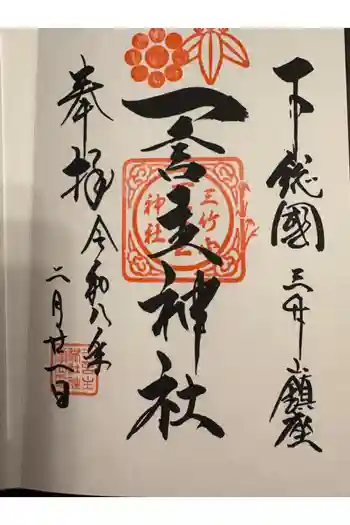 下総國三竹山鎮座
一言主神社
三竹山
神社
奉拝令和八年
二月廿一日